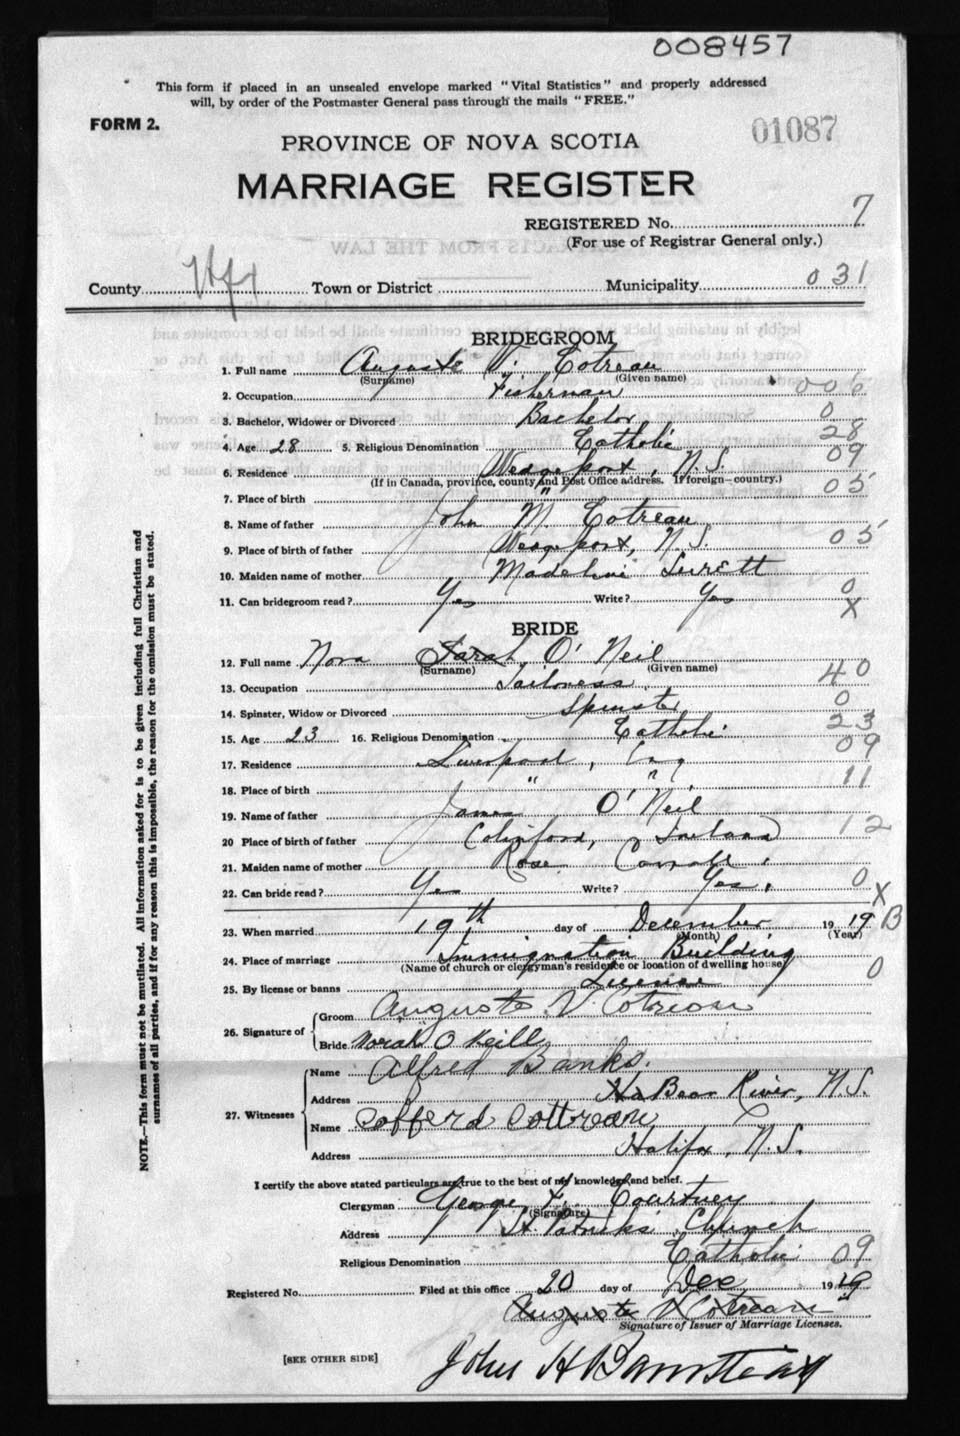 008457
This form if placed in an unsealed envelope marked "Vital Statistics" and properly addressed
will, by order of the Postmaster General pass through the mails "FREE."
FORM 2.
01087
PROVINCE OF NOVA SCOTIA
MARRIAGE REGISTER
REGISTERED No. 7
(For use of Registrar General only.)
County Hfx Town or District Municipality 031
BRIDEGROOM
1. Full name Auguste V. Cotreau
(Surname) (Given name)
2. Occupation Fisherman 006
3. Bachelor, Widower or Divorced Bachelor 0
4. Age 28 5. Religious Denomination Catholic 28
6. Residence Wedgeport, N.S. 09
(If in Canada, province, county and Post Office address. If foreign—country.)
7. Place of birth " 05
8. Name of father John M. Cotreau
9. Place of birth of father Wedgeport, N.S. 05
10. Maiden name of mother Madeline Surett
11. Can bridegroom read? Yes Write? Yes 0
X
BRIDE
12. Full name Nora Sarah O'Neil
(Surname) (Given name)
13. Occupation Tailoress 40
14. Spinster, Widow or Divorced Spinster 0
15. Age 23 16. Religious Denomination Catholic 23
17. Residence Liverpool, Eng 09
18. Place of birth " " 11
19. Name of father James O'Neil
20 Place of birth of father Ireland 12
21. Maiden name of mother Rose Carroll
22. Can bride read? Yes Write? Yes. 0 X
23. When married 19th day of December 1919 B
(Month) (Year)
24. Place of marriage Immigration Building
(Name of church or clergyman's residence or location of dwelling house) 0
25. By license or banns License
26. Signature of Groom Auguste V. Cotreau
Bride Norah O Neill
27. Witnesses Name Alfred Banks.
Address Bear River, N.S.
Name Cofferd Cottreau
Address Halifax, N.S.
I certify the above stated particulars are true to the best of my knowledge and belief.
Clergyman George F. Courtney
(Signature)
Address St Patricks Church
Religious Denomination Catholic 09
Registered No. Filed at this office 20 day of Dec 1919
Auguste V Cotreau
Signature of Issuer of Marriage Licenses.
[SEE OTHER SIDE]
John H Barnstead
NOTE.—This form must not be mutilated. All information asked for is to be given including full Christian and
surnames of all parties, and if for any reason this is impossible, the reason for the omission must be stated.